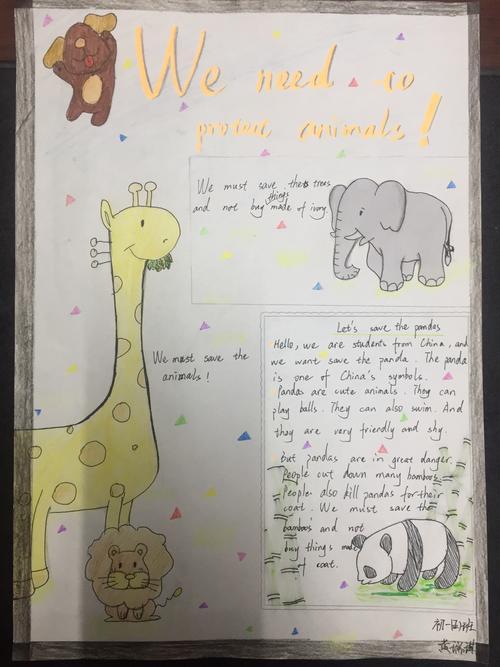 We need to
protect animals!
We must save the trees
things
and not buy made of ivory.
We must save the
animals!
Let's save the pandas
Hello, we are students from China, and
we want save the panda. The panda
is one of China's symbols.
Pandas are cute animals. They can
play balls. They can also swim. And
they are very friendly and shy.
But pandas are in great danger.
People cut down many bamboos.
People also kill pandas for their
coat. We must save the
bamboos and not
buy things made
of coat.
初一
班